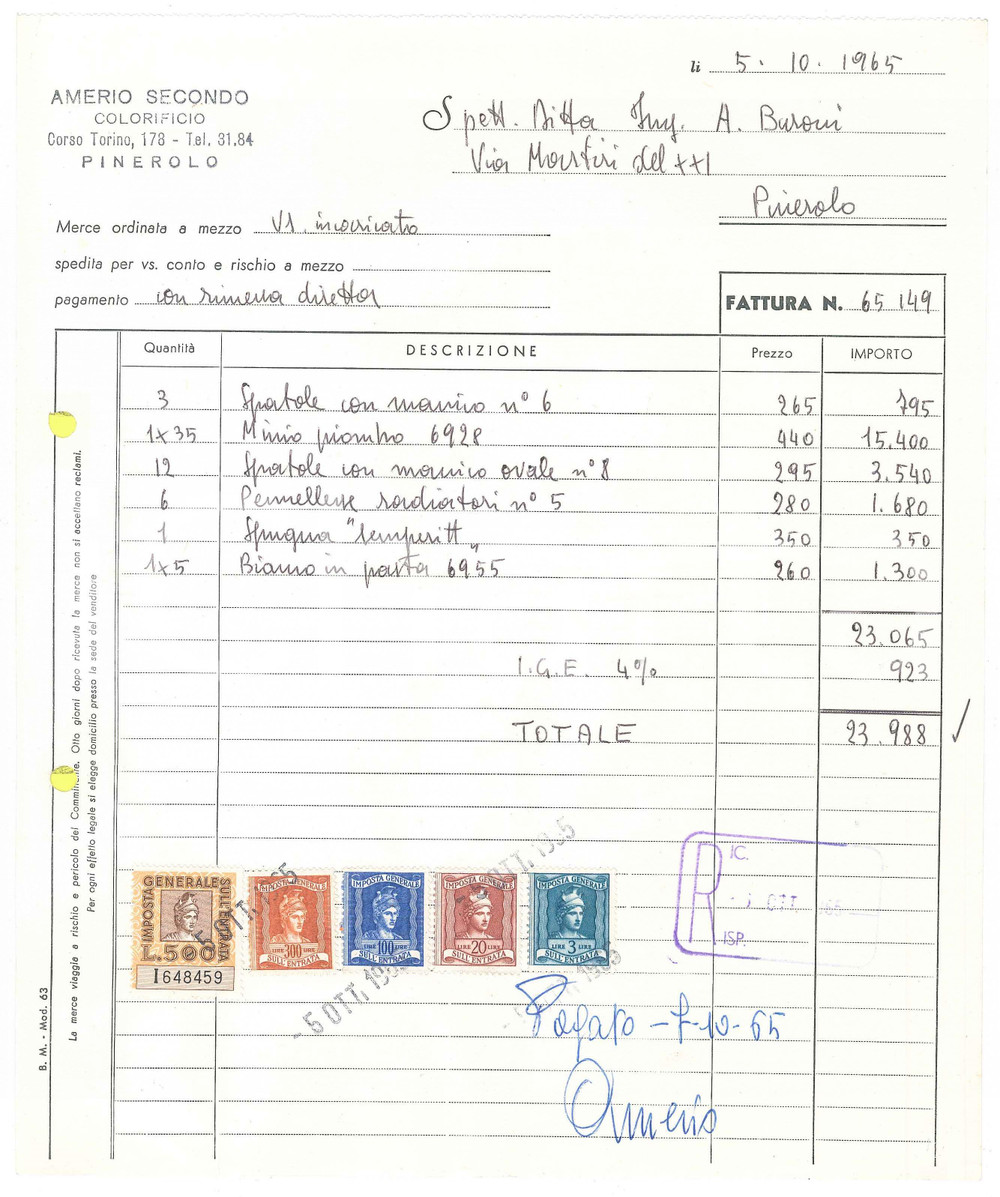 li 5. 10. 1965
AMERIO SECONDO
COLORIFICIO
Corso Torino, 178 - Tel. 31.84
PINEROLO
Spett. Ditta Ing. A. Buroni
Via Martiri del XXI
Pinerolo
Merce ordinata a mezzo Vs. incaricato
spedita per vs. conto e rischio a mezzo
pagamento con rimessa diretta
FATTURA N. 65149
Quantità DESCRIZIONE Prezzo IMPORTO
3 Spatole con manico n° 6 265 795
1x35 Minio piombo 6928 440 15.400
12 Spatole con manico ovale n° 8 295 3.540
6 Pennellesse radiatori n° 5 280 1.680
1 Spugna "Temperitt" 350 350
1x5 Bianco in pasta 6955 260 1.300
23.065
I.G.E. 4% 923
TOTALE 23.988
La merce viaggia a rischio e pericolo del Committente. Otto giorni dopo ricevuta la merce non si accettano reclami.
Per ogni effetto legale si elegge domicilio presso la sede del venditore
B. M. - Mod. 63
IMPOSTA GENERALE SULL'ENTRATA
L.500
I648459
IMPOSTA GENERALE
LIRE 300 LIRE
SULL'ENTRATA
IMPOSTA GENERALE
LIRE 100 LIRE
SULL'ENTRATA
IMPOSTA GENERALE
LIRE 20 LIRE
SULL'ENTRATA
IMPOSTA GENERALE
LIRE 3 LIRE
SULL'ENTRATA
- 5 OTT. 1965
R IC.
OTT 65
ISP.
Pagato - 7-10-65
Amerio